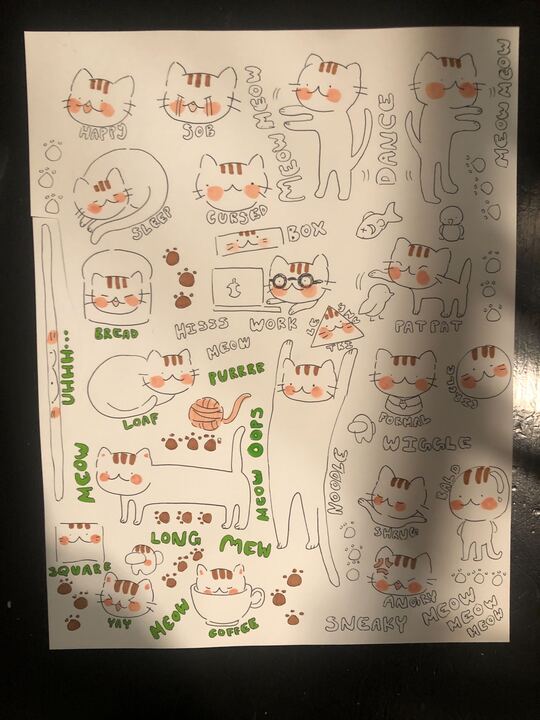 HAPPY
SOB
MEOW MEOW
DANCE
MEOW MEOW
SLEEP
CURSED
BOX
BREAD
HISSS
WORK
MEOW
TRI
PATPAT
UHHH...
LOAF
PURRRR
FORMAL
WIGGLE
MEOW
MEOW OOPS
NOODLE
BALD
SHRUG
LONG
MEW
SQUARE
YAY
MEOW
COFFEE
ANGRY
SNEAKY
MEOW
MEOW
MEOW